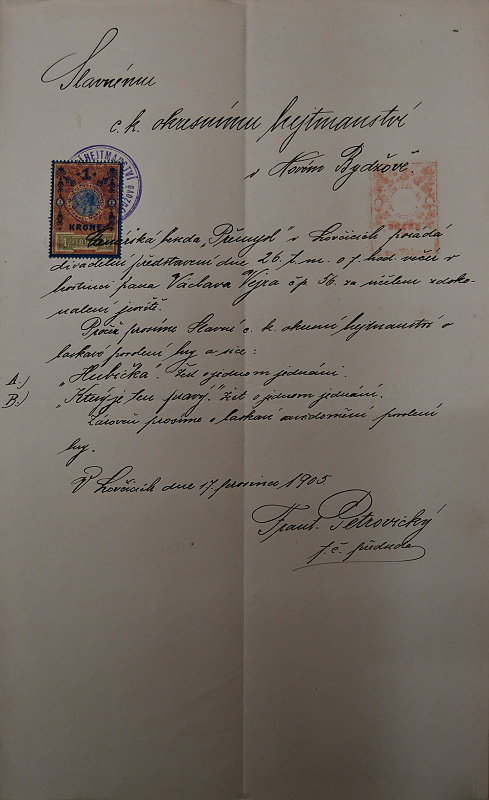 Slavnému
c. k. okresnímu hejtmanství
v Novém Bydžově.
HEJTMANSTVÍ
1
KRONE
Čtenářská beseda „Přemysl" v Lovčicích pořádá
divadelní představení dne 26. t. m. o 7 hod. večer v
hostinci pana Václava Vejra čp. 56. za účelem zdoko-
nalení jeviště.
Pročež prosíme Slavné c. k. okresní hejtmanství o
laskavé povolení hry a sice:
A.) „Hubička". Žert o jednom jednání.
B.) „Který je ten pravý." Žert o jednom jednání.
Zároveň prosíme o laskavé povolení
hry.
V Lovčicích dne 17. prosince 1905.
Frant. Petrovický
t. č. předseda